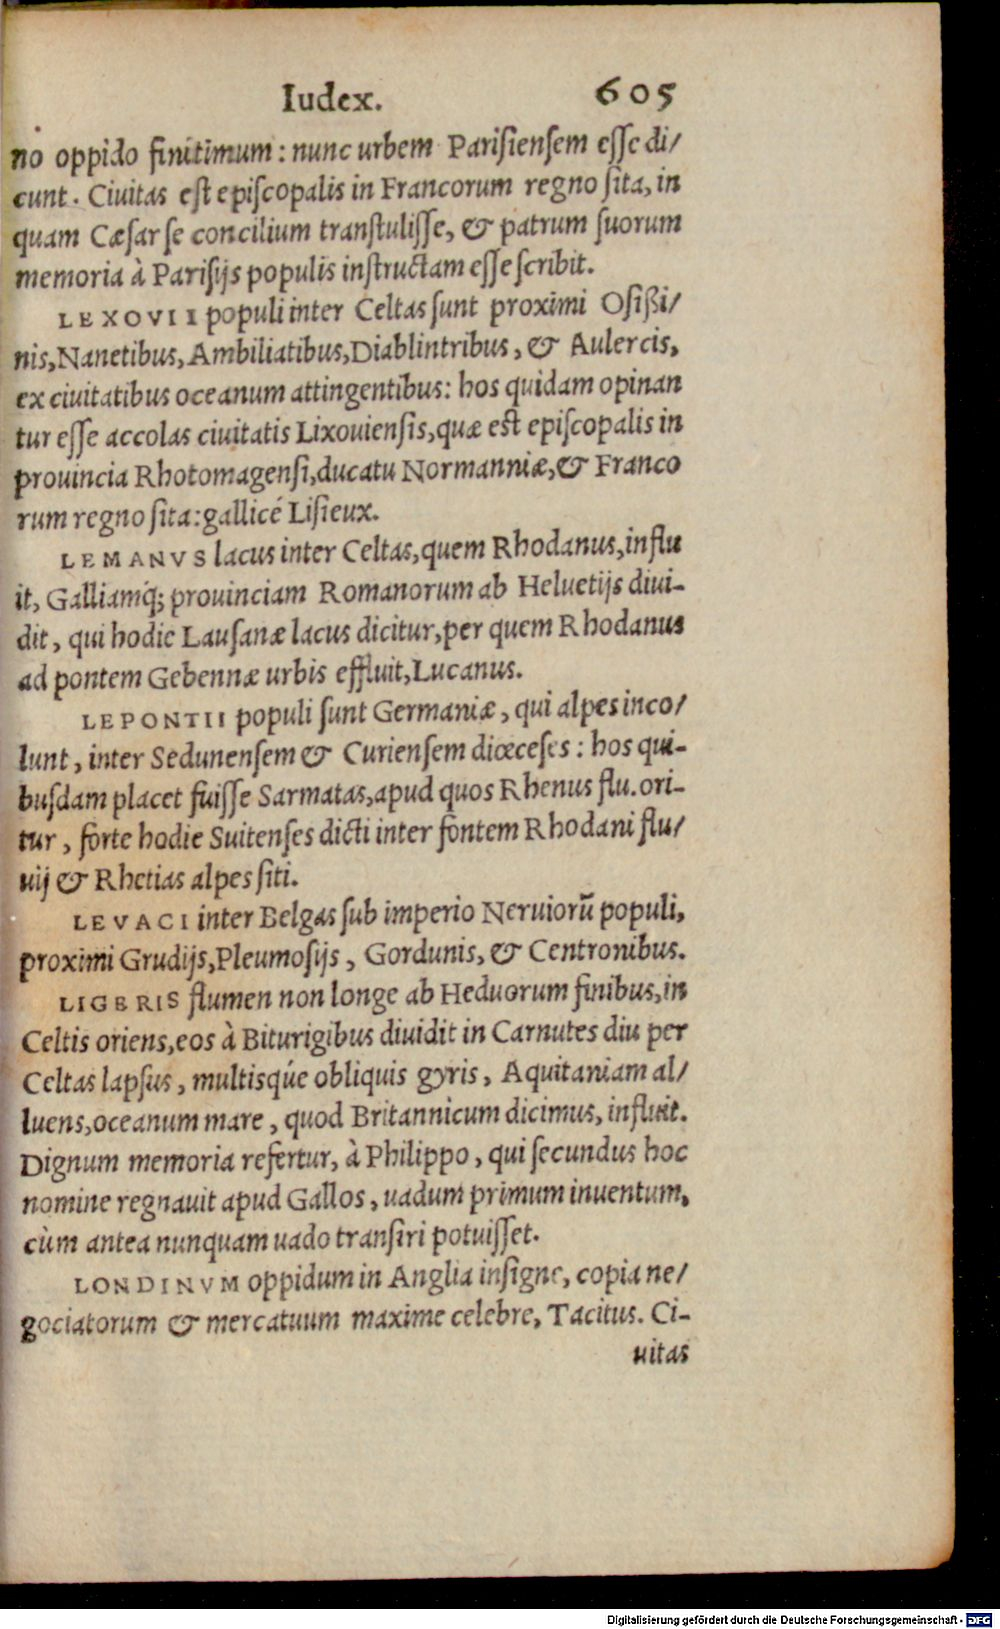 Iudex. 605
no oppido finitimum: nunc urbem Parisiensem esse di/
cunt. Ciuitas est episcopalis in Francorum regno sita, in
quam Cæsar se concilium transtulisse, & patrum suorum
memoria à Parisijs populis instructam esse scribit.
LEXOVII populi inter Celtas sunt proximi Osißi/
nis, Nanetibus, Ambiliatibus, Diablintribus, & Aulercis,
ex ciuitatibus oceanum attingentibus: hos quidam opinan
tur esse accolas ciuitatis Lixouiensis, quæ est episcopalis in
prouincia Rhotomagensi, ducatu Normanniæ, & Franco
rum regno sita: gallicé Lisieux.
LEMANVS lacus inter Celtas, quem Rhodanus, influ
it, Galliamq́; prouinciam Romanorum ab Heluetijs diui-
dit, qui hodie Lausanæ lacus dicitur, per quem Rhodanus
ad pontem Gebennæ urbis effluit, Lucanus.
LEPONTII populi sunt Germaniæ, qui alpes inco/
lunt, inter Sedunensem & Curiensem diœceses: hos qui-
busdam placet fuisse Sarmatas, apud quos Rhenus flu. ori-
tur, forte hodie Suitenses dicti inter fontem Rhodani flu/
uij & Rhetias alpes siti.
LEVACI inter Belgas sub imperio Neruiorū populi,
proximi Grudijs, Pleumosijs, Gordunis, & Centronibus.
LIGERIS flumen non longe ab Heduorum finibus, in
Celtis oriens, eos à Biturigibus diuidit in Carnutes diu per
Celtas lapsus, multisqúe obliquis gyris, Aquitaniam al/
luens, oceanum mare, quod Britannicum dicimus, influit.
Dignum memoria refertur, à Philippo, qui secundus hoc
nomine regnauit apud Gallos, uadum primum inuentum,
cùm antea nunquam uado transiri potuisset.
LONDINVM oppidum in Anglia insigne, copia ne/
gociatorum & mercatuum maxime celebre, Tacitus. Ci-
uitas
Digitalisierung gefördert durch die Deutsche Forschungsgemeinschaft - DFG